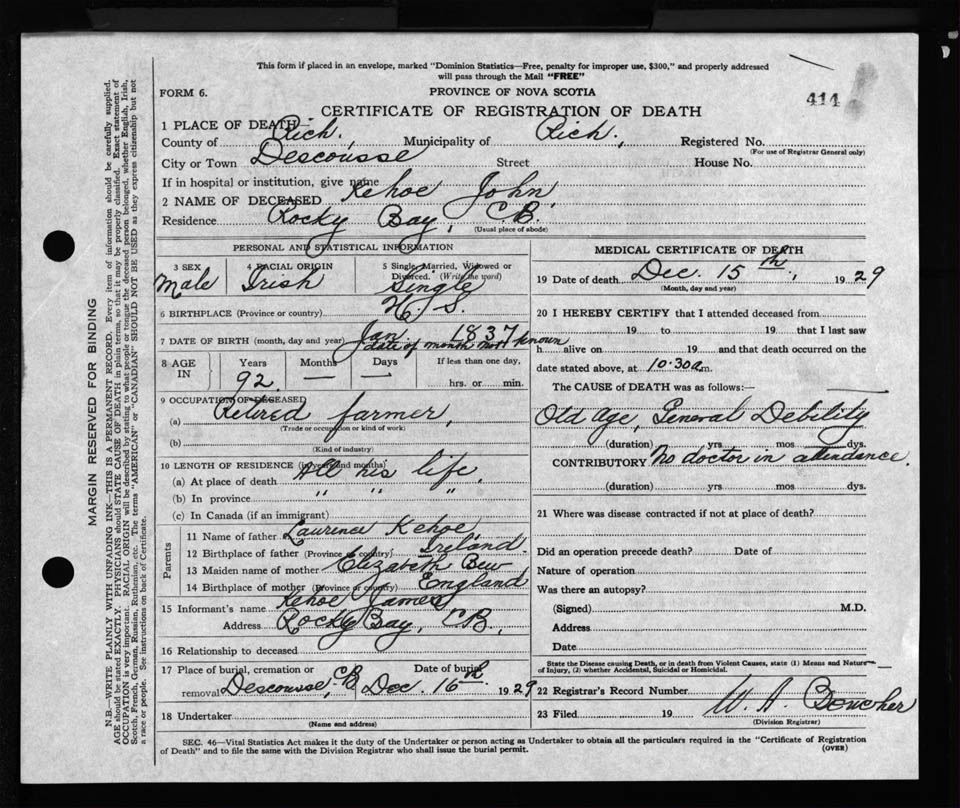 This form if placed in an envelope, marked "Dominion Statistics—Free, penalty for improper use, $300," and properly addressed
will pass through the Mail "FREE"
FORM 6.
PROVINCE OF NOVA SCOTIA
414
CERTIFICATE OF REGISTRATION OF DEATH
1 PLACE OF DEATH
County of Rich. Municipality of Rich. Registered No.
(For use of Registrar General only)
City or Town Descousse Street House No.
If in hospital or institution, give name
2 NAME OF DECEASED Kehoe John
Residence Rocky Bay, C.B.
(Usual place of abode)
PERSONAL AND STATISTICAL INFORMATION
3 SEX 4 RACIAL ORIGIN 5 Single, Married, Widowed or
Divorced. (Write the word)
Male Irish Single
6 BIRTHPLACE (Province or country) N.S.
7 DATE OF BIRTH (month, day and year) Jan 1837
date of month not known
8 AGE IN Years Months Days If less than one day,
92. — — hrs. or min.
9 OCCUPATION OF DECEASED
(a) Retired farmer,
(Trade or occupation or kind of work)
(b)
(Kind of industry)
10 LENGTH OF RESIDENCE (in years and months)
(a) At place of death All his life
(b) In province " " "
(c) In Canada (if an immigrant)
Parents
11 Name of father Laurence Kehoe
12 Birthplace of father (Province or country) Ireland.
13 Maiden name of mother Elizabeth Bew
14 Birthplace of mother (Province or country) England
15 Informant's name Kehoe James
Address Rocky Bay, C.B.,
16 Relationship to deceased
17 Place of burial, cremation or Date of burial
removal Descousse, C.B. Dec. 16th 1929
18 Undertaker
(Name and address)
MEDICAL CERTIFICATE OF DEATH
19 Date of death Dec. 15th, 1929
(Month, day and year)
20 I HEREBY CERTIFY that I attended deceased from
19 to 19 that I last saw
h alive on 19 and that death occurred on the
date stated above, at 10.30 a.m.
The CAUSE of DEATH was as follows:—
Old age, General Debility
(duration) yrs mos dys.
CONTRIBUTORY No doctor in attendance.
(duration) yrs mos dys.
21 Where was disease contracted if not at place of death?
Did an operation precede death? Date of
Nature of operation
Was there an autopsy?
(Signed) M.D.
Address
Date
State the Disease causing Death, or in death from Violent Causes, state (1) Means and Nature
of Injury, (2) whether Accidental, Suicidal or Homicidal.
22 Registrar's Record Number
23 Filed 19 W. A. Boucher
(Division Registrar)
SEC. 46—Vital Statistics Act makes it the duty of the Undertaker or person acting as Undertaker to obtain all the particulars required in the "Certificate of Registration
of Death" and to file the same with the Division Registrar who shall issue the burial permit.
(OVER)
MARGIN RESERVED FOR BINDING
N.B.—WRITE PLAINLY WITH UNFADING INK—THIS IS A PERMANENT RECORD. Every item of information should be carefully supplied.
AGE should be stated EXACTLY. PHYSICIANS should STATE CAUSE OF DEATH in plain terms, so that it may be properly classified. Exact statement of
OCCUPATION is very important. RACIAL ORIGIN will be described by stating to what people or tongue the deceased person belonged, whether English, Irish,
Scotch, French, German, Russian, Ruthenian, etc. The terms "AMERICAN" or "CANADIAN" SHOULD NOT BE USED as they express citizenship but not
a race or people. See instructions on back of Certificate.